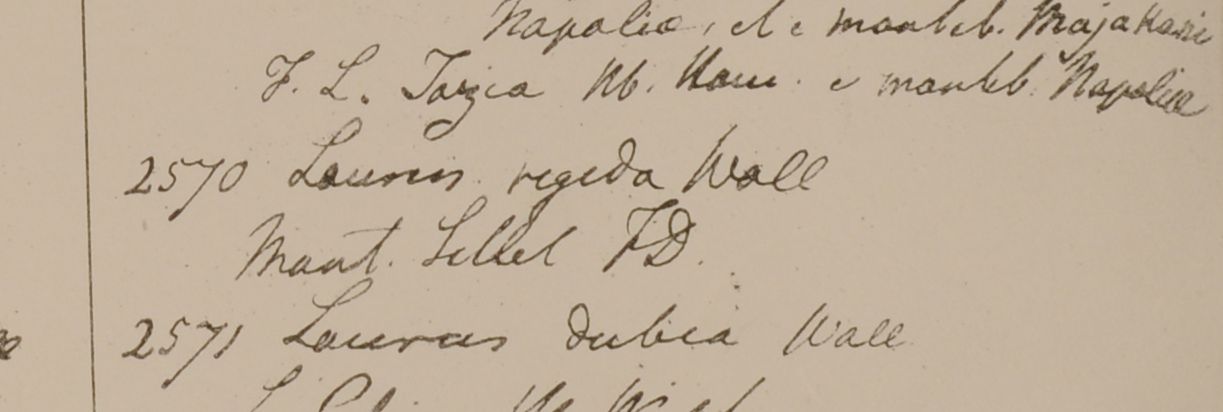 Napalia, et e montib.
F. L. Hb. Ham. e montib. Napaliae
2570 Laurus rigida Wall
Mont. Sillet FD.
2571 Laurus dubia Wall